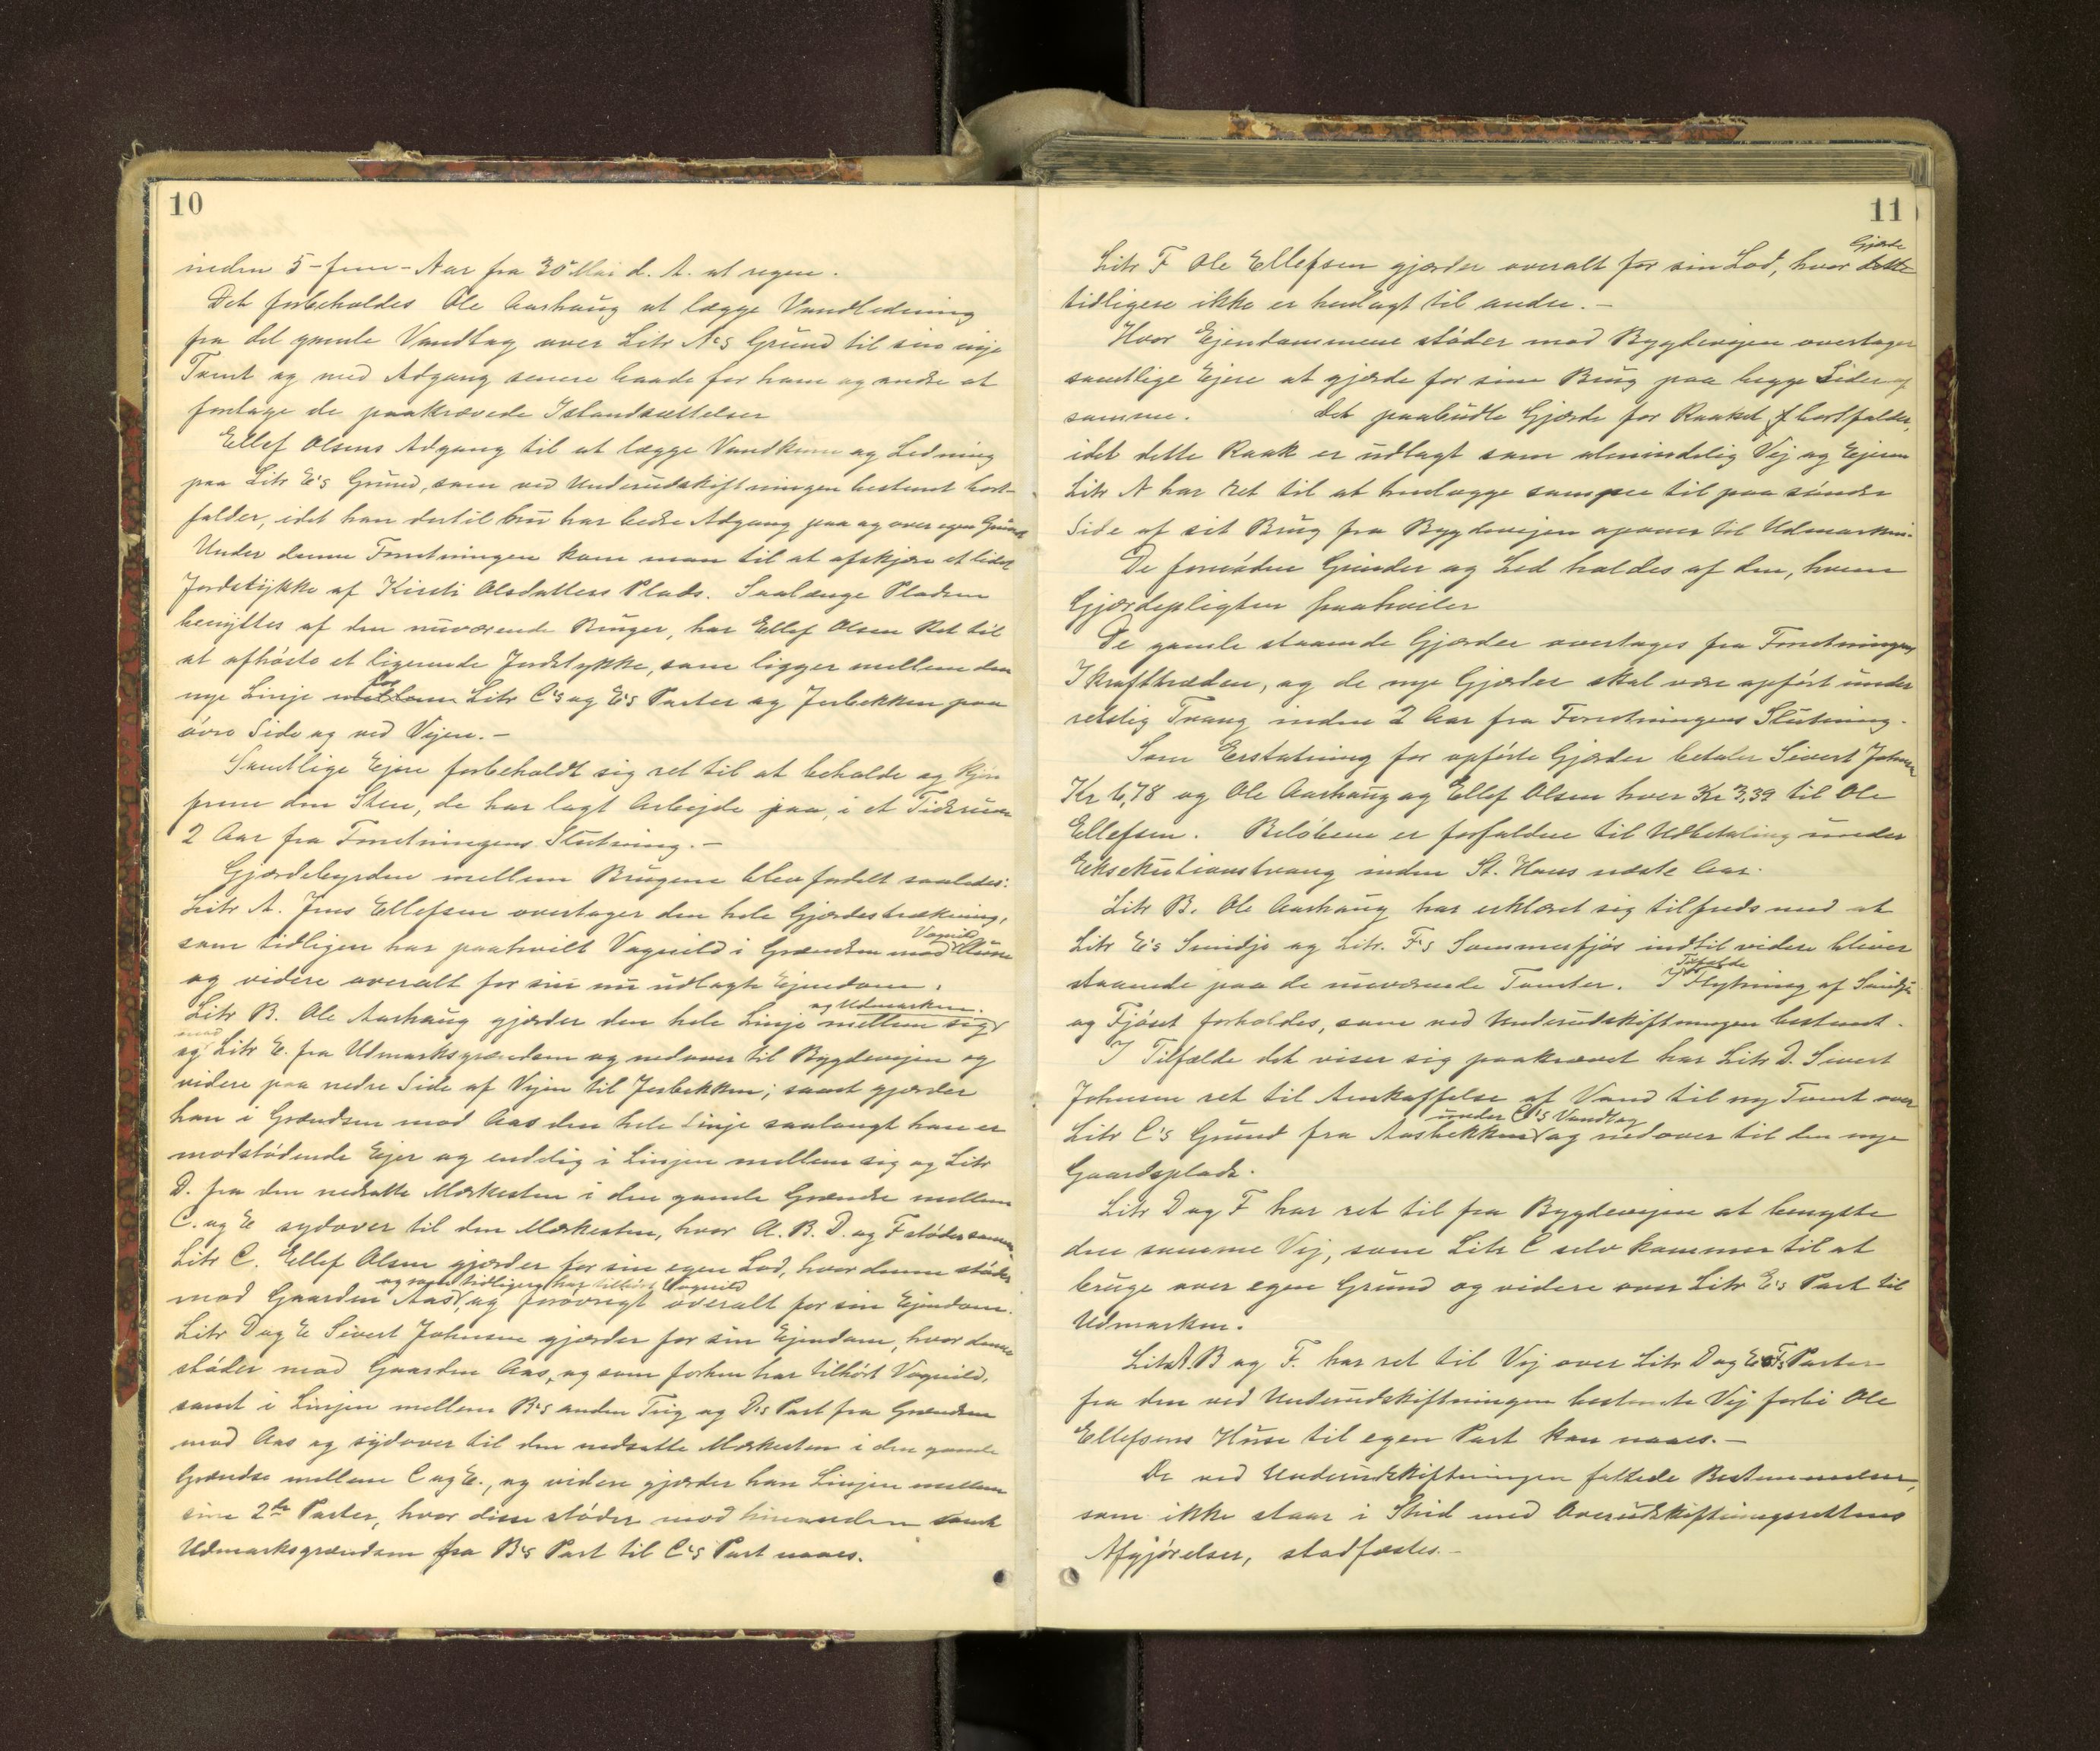 10
inden 5-fem-Aar fra 30 Mai d. A. at regne.
Det forbeholdes Ole Aashaug at lægge Vandledning
fra det gamle Vandtag over Litr A's Grund til sin nye
Tomt og med Adgang senere baade for ham og andre at
foretage de paakrævede Istandsættelser
Ellef Olsens Adgang til at lægge Vandkum og Ledning
paa Litr E's Grund, som ved Underudskiftningen bestemt bort-
falder, idet han dertil nu har bedre Adgang paa og over egen Grund
Under denne Forretningen kom man til at afskjære et lidet
Jordstykke af Kirsti Olsdatters Plads. Saalænge Pladsen
benyttes af den nuværende Bruger, har Ellef Olsen Ret til
at afhøste et lignende Jordstykke, som ligger mellem den
nye Linje for mellem Litr C's og E's Parter og Jerbekken paa
øvre Side og ved Vejen.-
Samtlige Ejere forbeholdt sig ret til at beholde og kjøre
frem den Sten, de har lagt Arbejde paa, i et Tidsrum
2 Aar fra Forretningens Slutning.-
Gjærdebyrden mellem Brugene blev fordelt saaledes:
Litr A. Jens Ellefsen overtager den hele Gjærdestrækning,
som tidligere har paahvilt Vognild i Grændsen mod Vognild
og videre overalt for sin nu udlagte Ejendom.
Litr B. Ole Aashaug gjærder den hele Linje mellem sig og Udmarken.
mod
og Litr E. fra Udmarksgrændsen og nedover til Bygdevejen og
videre paa nedre Side af Vejen til Jerbekken; samt gjærder
han i Grændsen mod Aas den hele Linje saalangt han er
modstødende Ejer og endelig i Linjen mellem sig og Litr
D. fra den nedsatte Merkesten i den gamle Grændse mellem
C. og E sydover til den Merkesten, hvor A. B. D. og F støder sammen.
Litr C. Ellef Olsen gjærder for sin egen Lod, hvor denne støder
og som tidligere har tilhørt Vognild
mod Gaarden Aas, og forøvrigt overalt for sin Ejendom.
Litr D og E Sivert Johnsen gjærder for sin Ejendom, hvor denne
støder mod Gaarden Aas, og som forhen har tilhørt Vognild,
samt i Linjen mellem B's anden Teig og D's Part fra Grændsen
mod Aas og sydover til den nedsatte Merkesten i den gamle
Grændse mellem C og E., og videre gjærder han Linjen mellem
sine 2de Parter, hvor disse støder mod hinanden samt
Udmarksgrændsen fra B's Part til C's Part naaes.
11
Gjærde
Litr F Ole Ellefsen gjærder overalt for sin Lod, hvor dette
tidligere ikke er henlagt til andre.-
Hvor Ejendommene støder mod Bygdevejen overtager
samtlige Ejere at gjærde for sine Brug paa begge Sider af
samme. Det paabudte Gjærde for Raaket f bortfalder,
idet dette Raak er udlagt som almindelig Vej og Ejeren
Litr A har ret til at henlægge samme til paa søndre
Side af sit Brug fra Bygdevejen opover til Udmarken.
De fornødne Grinder og Led holdes af den, hvem
Gjærdepligten paahviler
De gamle staaende Gjærder overtages fra Forretningens
Ikrafttræden, og de nye Gjærder skal være opført under
retslig Tvang inden 2 Aar fra Forretningens Slutning.
Som Erstatning for opførte Gjærder betaler Sivert Johnsen
Kr 6,78 og Ole Aashaug og Ellef Olsen hver Kr 3,39 til Ole
Ellefsen. Beløbene er forfaldne til Udbetaling under
Eksekutionstvang inden St. Hans næste Aar.
Litr B. Ole Aashaug har erklæret sig tilfreds med at
Litr E's Smidje og Litr. F's Sommerfjøs indtil videre bliver
Tilfælde
staaende paa de nuværende Tomter. I Flytning af Smidje
og Fjøset forholdes, som ved Underudskiftningen bestemt.
I Tilfælde det viser sig paakrævet har Litr D. Sivert
Johnsen ret til Anskaffelse af Vand til ny Tomt over
under C's Vandtag
Litr C's Grund fra Aasbekken og nedover til den nye
Gaardsplads.
Litr D og F har ret til fra Bygdevejen at benytte
den samme Vej, som Litr C selv kommer til at
bruge over egen Grund og videre over Litr E's Part til
Udmarken.
Litr A. B og F. har ret til Vej over Litr D og E's Parter
fra den ved Underudskiftningen bestemte Vej forbi Ole
Ellefsens Huse til egen Part kan naaes.-
De ved Underudskiftningen fattede Bestemmelser,
som ikke staar i Strid med Overudskiftningsrettens
Afgjørelser, stadfæstes.-